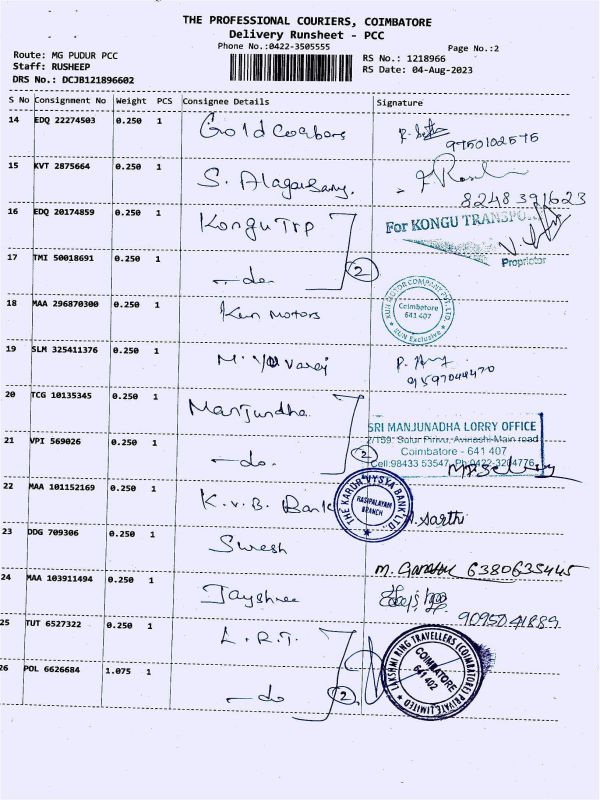 THE PROFESSIONAL COURIERS, COIMBATORE
Delivery Runsheet - PCC
Phone No.:0422-3505555
Page No.:2
Route: MG PUDUR PCC
Staff: RUSHEEP
DRS No.: DCJB121896602
RS No.: 1218966
RS Date: 04-Aug-2023
S No Consignment No Weight PCS Consignee Details Signature
14 EDQ 22274503 0.250 1 Gold
9750102575
15 KVT 2875664 0.250 1 S.
8248391623
16 EDQ 20174859 0.250 1 Kongu Trp
For KONGU TRANSPO
Proprietor
17 TMI 50018691 0.250 1 -do- 2
18 MAA 296870300 0.250 1 Kun Motors
KUN MOTOR COMPANY PVT. LTD.
Coimbatore
641 407
KUN Exclusive
19 SLM 325411376 0.250 1 M. Yuvaraj
9597044470
20 TCG 10135345 0.250 1 Manjundha
SRI MANJUNADHA LORRY OFFICE
2/159, Sulur Pirivu, Avinashi Main road
Coimbatore - 641 407
Cell:98433 53547, Ph:0422-3204776
21 VPI 569026 0.250 1 -do- 2
22 MAA 101152169 0.250 1 K.V.B. Bank
THE KARUR VYSYA BANK LTD.
KASIPALAYAM
BRANCH
Sarthi
23 DDG 709306 0.250 1 Suresh
M. Ganesh 6380635445
24 MAA 103911494 0.250 1 Jayshree
9095041889
25 TUT 6527322 0.250 1 L.R.T.
LAKSHMI RING TRAVELLERS (COIMBATORE) PRIVATE LIMITED
COIMBATORE
641 402
26 POL 6626684 1.075 1 -do 2